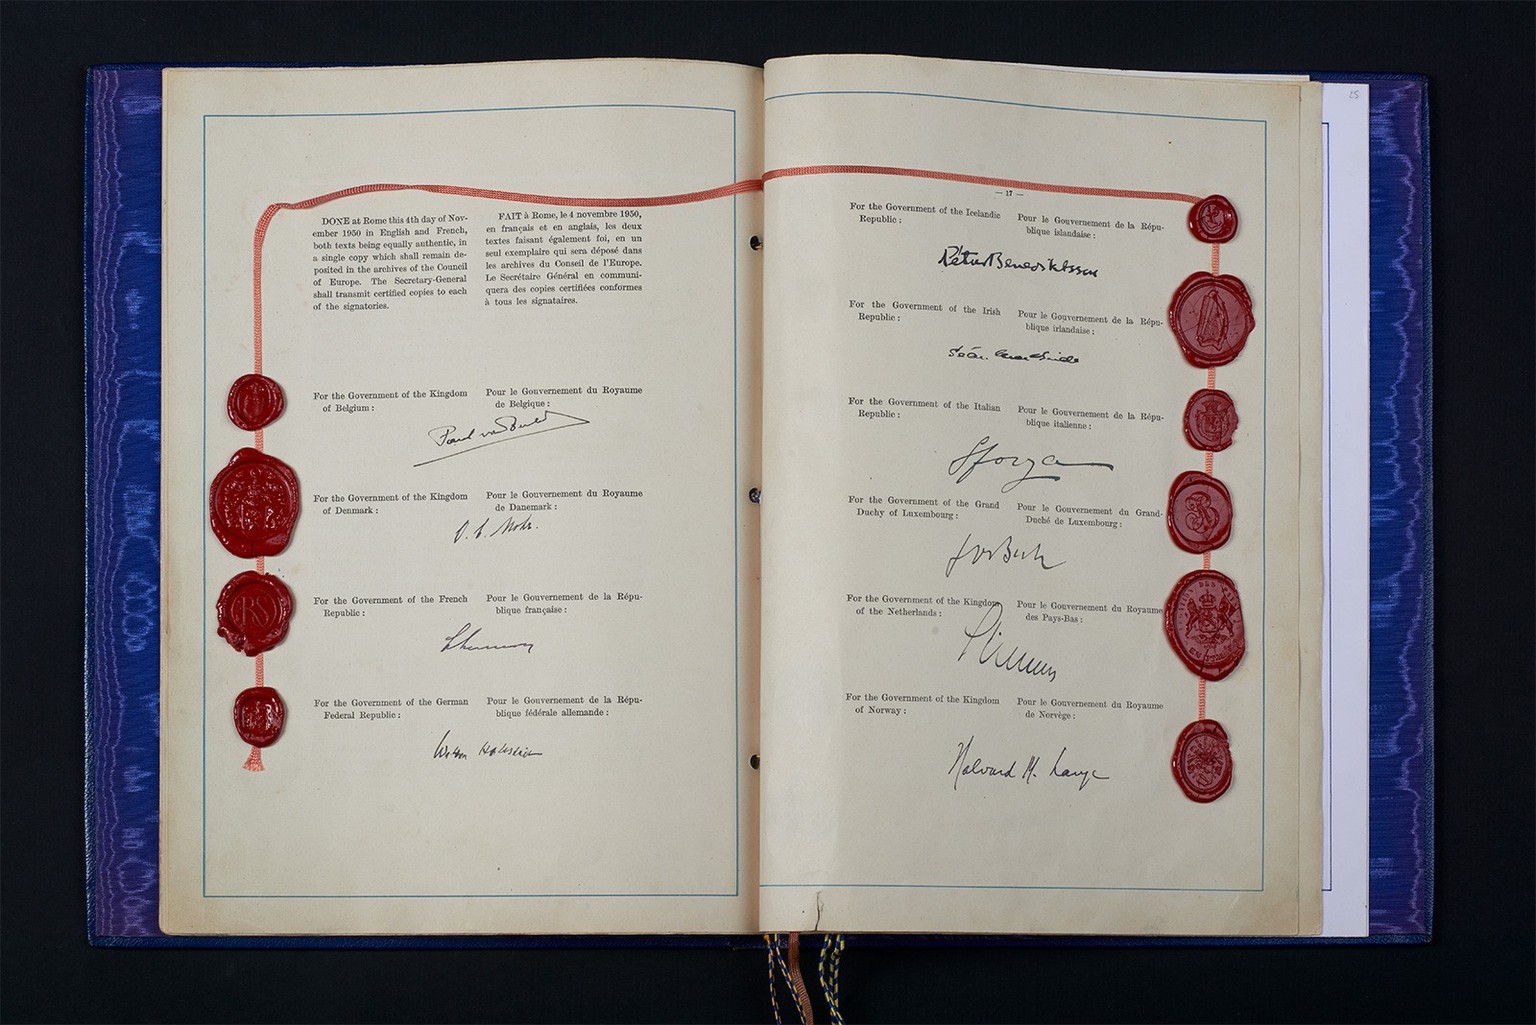 DONE at Rome this 4th day of Nov-
ember 1950 in English and French,
both texts being equally authentic, in
a single copy which shall remain de-
posited in the archives of the Council
of Europe. The Secretary-General
shall transmit certified copies to each
of the signatories.
FAIT à Rome, le 4 novembre 1950,
en français et en anglais, les deux
textes faisant également foi, en un
seul exemplaire qui sera déposé dans
les archives du Conseil de l'Europe.
Le Secrétaire Général en communi-
quera des copies certifiées conformes
à tous les signataires.
For the Government of the Kingdom
of Belgium :
Pour le Gouvernement du Royaume
de Belgique :
Paul van
For the Government of the Kingdom
of Denmark :
Pour le Gouvernement du Royaume
de Danemark :
For the Government of the French
Republic :
Pour le Gouvernement de la Répu-
blique française :
RS
For the Government of the German
Federal Republic :
Pour le Gouvernement de la Répu-
blique fédérale allemande :
— 17 —
For the Government of the Icelandic
Republic :
Pour le Gouvernement de la Répu-
blique islandaise :
Pétur Benediktsson
For the Government of the Irish
Republic :
Pour le Gouvernement de la Répu-
blique irlandaise :
Seán
For the Government of the Italian
Republic :
Pour le Gouvernement de la Répu-
blique italienne :
Sforza
For the Government of the Grand
Duchy of Luxembourg :
Pour le Gouvernement du Grand-
Duché de Luxembourg :
For the Government of the Kingdom
of the Netherlands :
Pour le Gouvernement du Royaume
des Pays-Bas :
For the Government of the Kingdom
of Norway :
Pour le Gouvernement du Royaume
de Norvège :
Halvard M. Lange
25